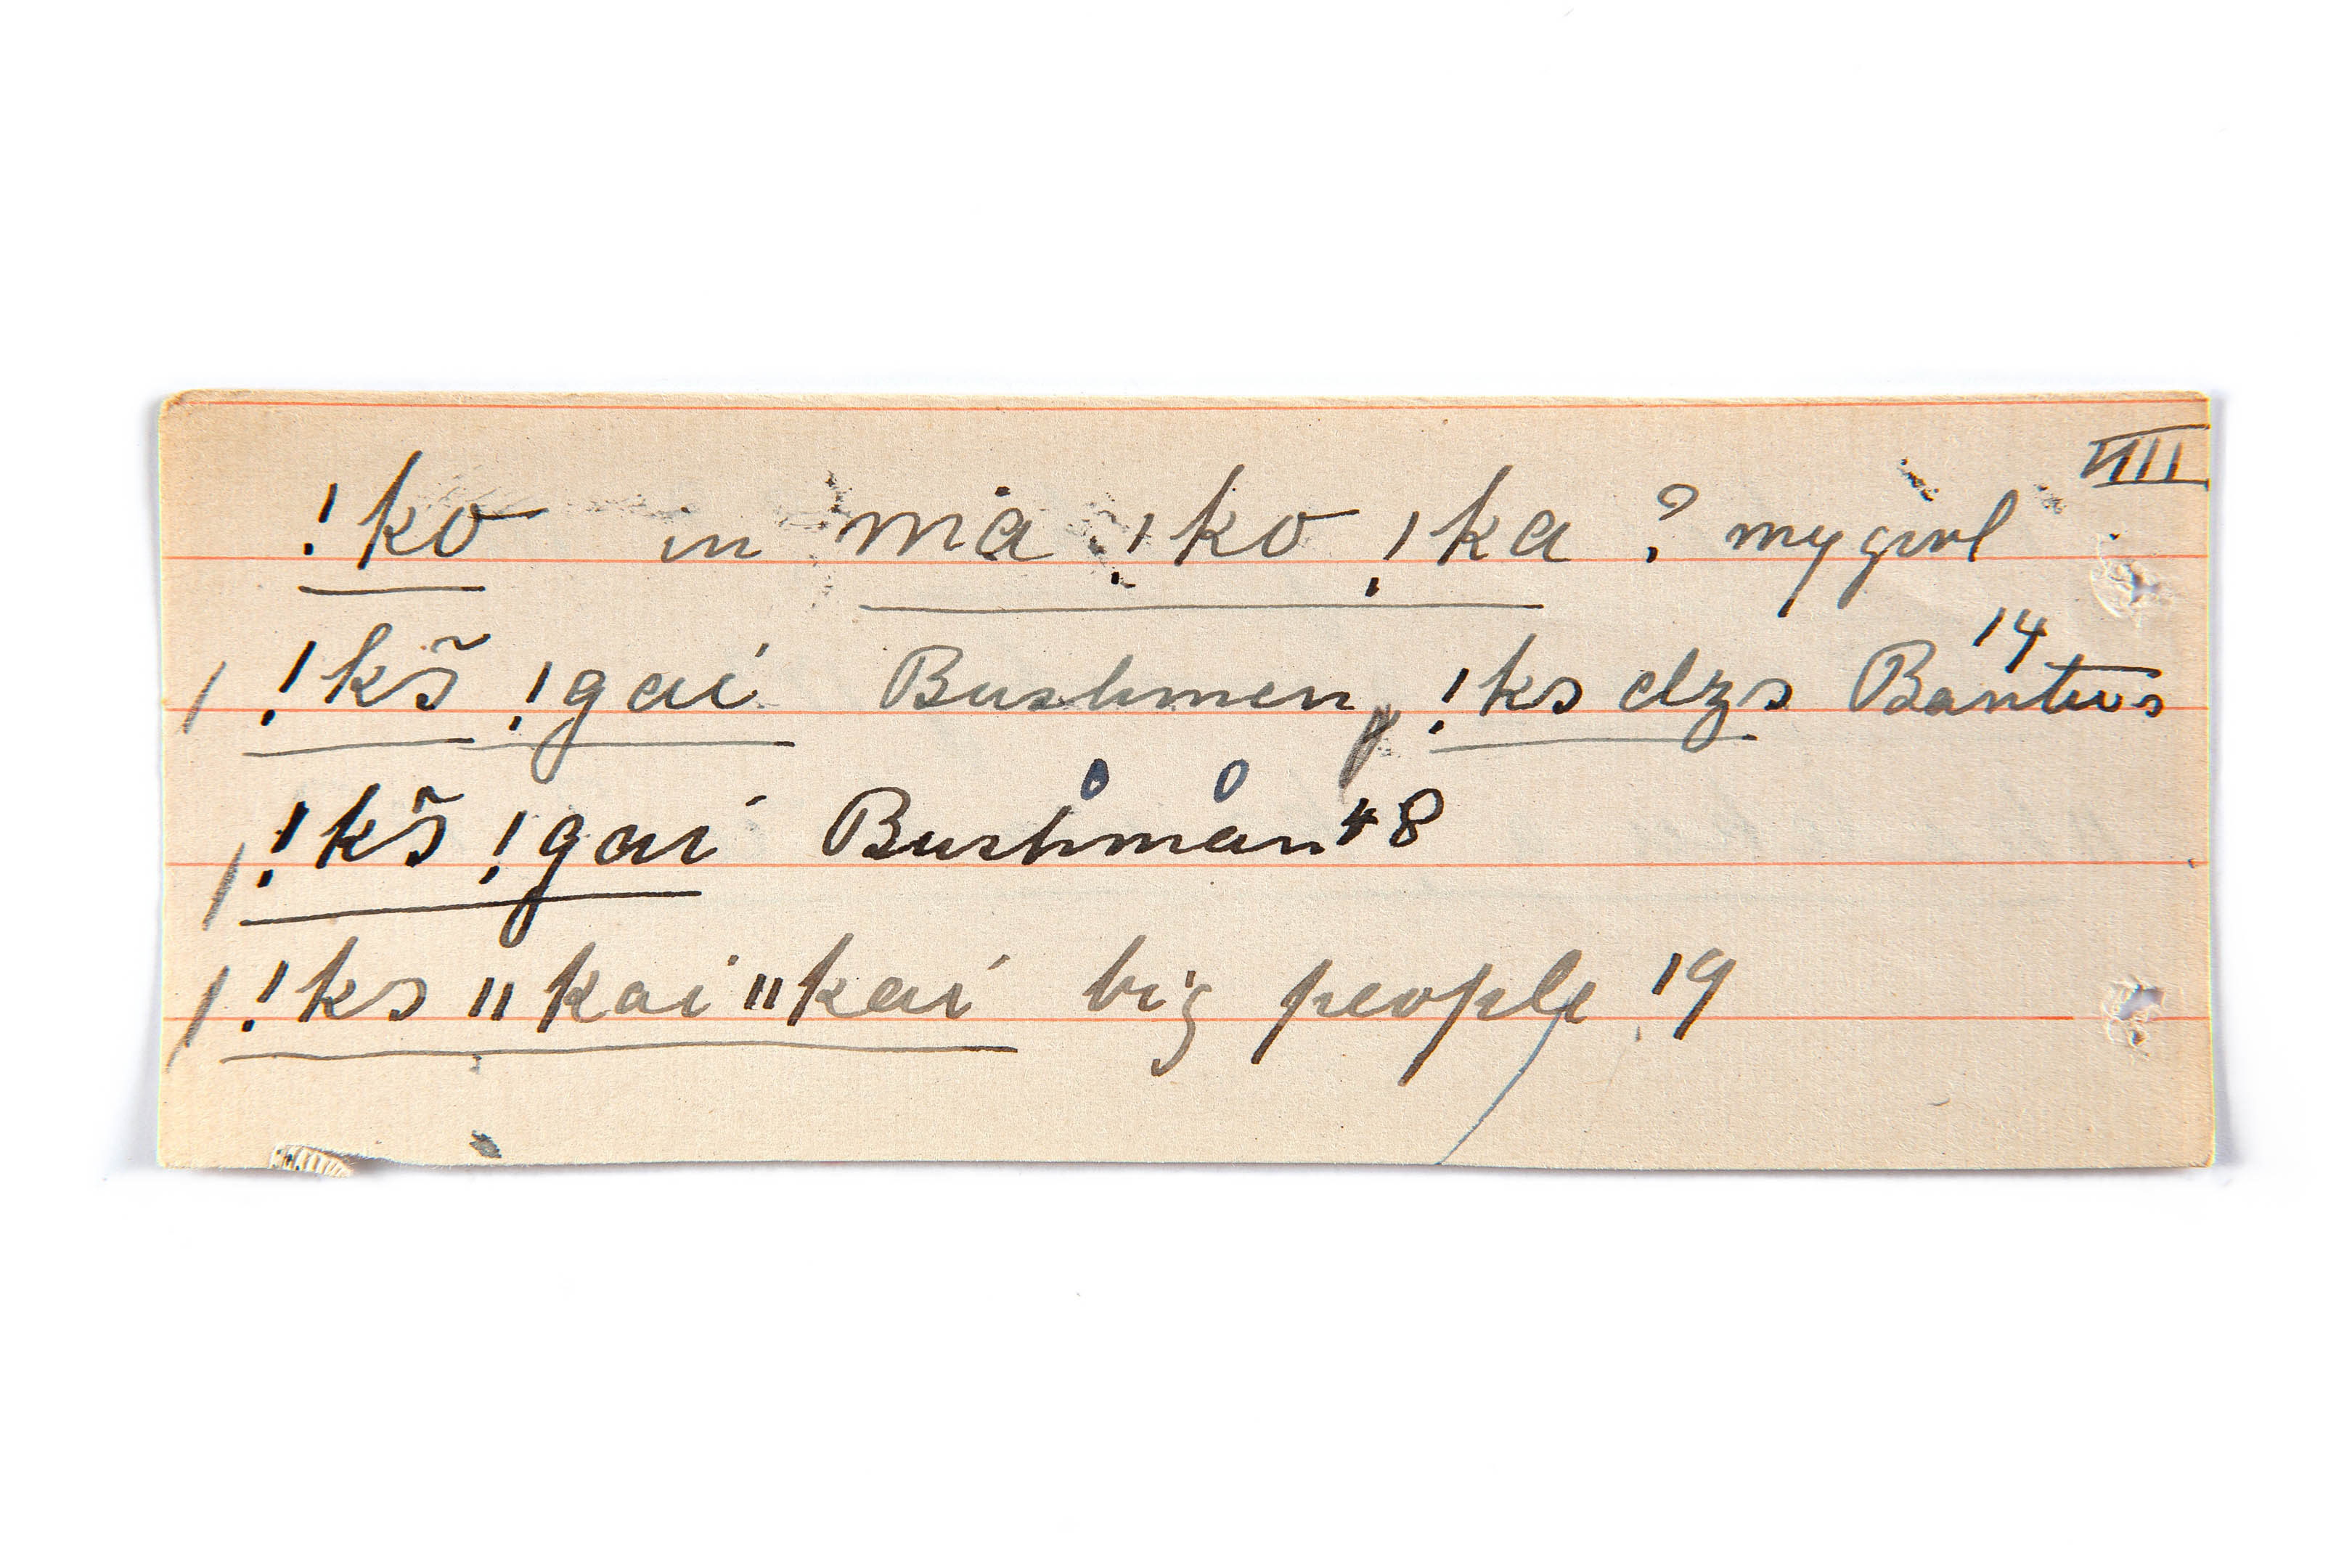 VIII
!ko in ma !ko !ka ? my girl
/ !kš !gai Bushmen, !ks dzs Bantus 14
/ !kš !gai Bushman 48
/ !ks ǁkai ǁkai big people 19